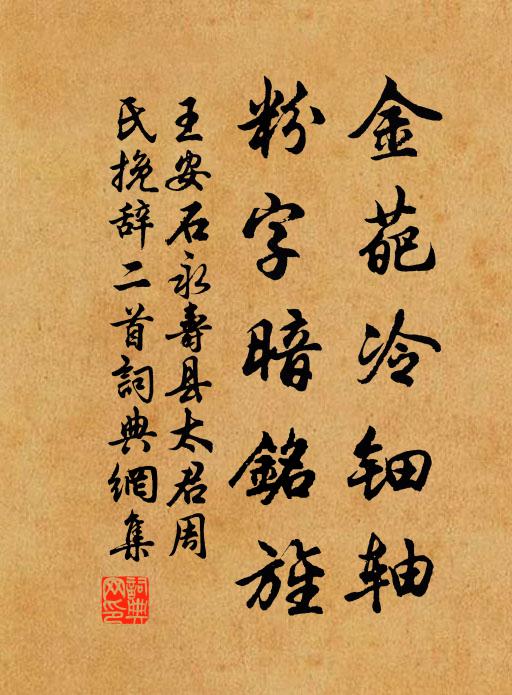 金葩冷钿轴
粉字暗銘旌
王安石永壽县太君周
氏挽辞二首詞典網集
詞典網印